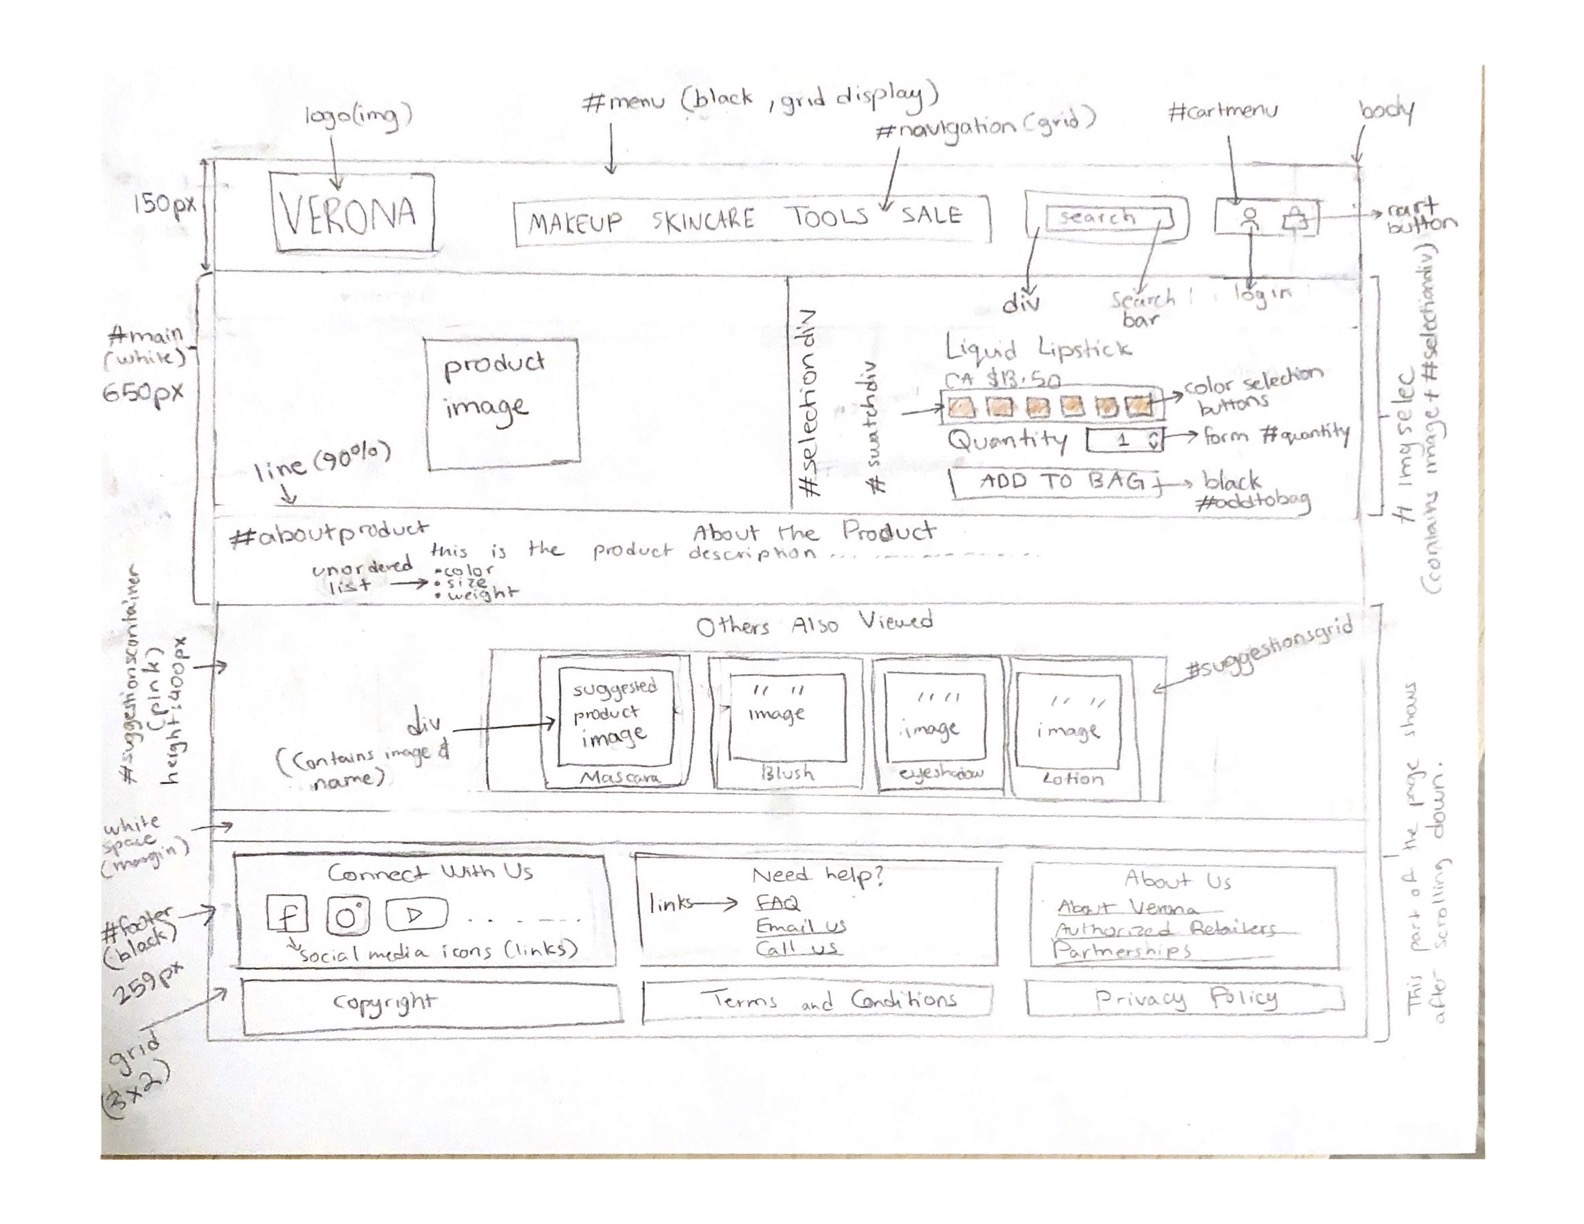 logo(img)
#menu (black, grid display)
#navigation(grid)
#cartmenu
body
150px
VERONA
MAKEUP SKINCARE TOOLS SALE
search
cart
button
div
search
bar
login
#main
(white)
650px
product
image
line (90%)
#selectiondiv
#swatchdiv
Liquid Lipstick
CA $13.50
color selection
buttons
Quantity 1
form #quantity
ADD TO BAG
black
#addtobag
#imgselec
(contains image + #selectiondiv)
#aboutproduct
About the Product
this is the product description
unordered
list
•color
•size
•weight
#suggestionscontainer
(pink)
height:400px
Others Also Viewed
#suggestionsgrid
div
(contains image &
name)
suggested
product
image
Mascara
" "
image
Blush
" "
image
eyeshadow
" "
image
Lotion
white
space
(margin)
This part of the page shows
after scrolling down.
#footer
(black)
259px
grid
(3x2)
Connect With Us
f
social media icons (links)
Need help?
links
FAQ
Email us
Call us
About Us
About Verona
Authorized Retailers
Partnerships
Copyright
Terms and Conditions
Privacy Policy